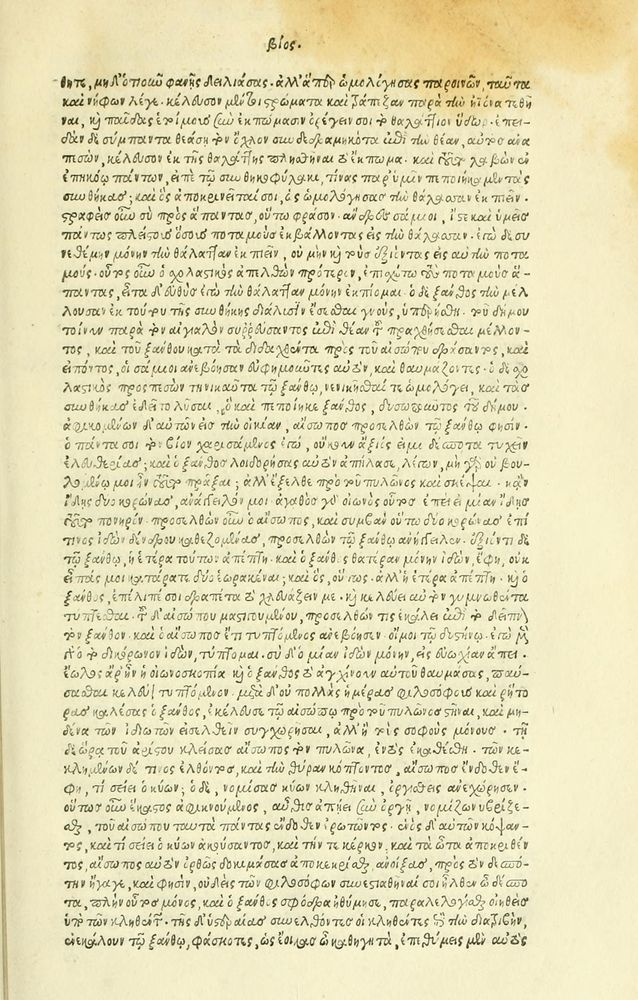 βίος.
θητε, μηδ' ὁπωσοῦν φανῇς δειλιάσας. ἀλλ' ἅπερ ὡμολόγησας παροινῶν, ταῦτα
καὶ νήφων λέγε. κέλευσον μὲν στρώματα καὶ τράπεζαν παρὰ τὴν ἠϊόνα τεθῆ
ναι, καὶ παῖδας ἑτοίμους ἐκπώμασιν ὀρέγειν σοι τὸ θαλάττιον ὕδωρ. ἐπει-
δὰν δὲ σύμπαντα θεάσῃ τὸν ὄχλον συνδεδραμηκότα ἐπὶ τὴν θέαν, αὐτὸς ἀνα
πεσών, κέλευσον ἐκ τῆς θαλάττης πλησθῆναι τὸ ἔκπωμα. καὶ τοῦτο λαβὼν
ἐπηκόῳ πάντων, εἰπὲ τῷ συνθηκοφύλακι, τίνας παρ' ὑμῖν πεποίημαι τὰς
συνθήκας; καὶ ὃς ἀποκρινεῖταί σοι, ὡς ὡμολόγησας τὴν θάλασσαν ἐκπιεῖν.
στραφεὶς οὖν σὺ πρὸς ἅπαντας, οὕτω φράσον. ἄνδρες σάμιοι, ἴστε καὶ ὑμεῖς
πάντως πλείστους ὅσους ποταμοὺς ἐκβάλλοντας εἰς τὴν θάλασσαν. ἐγὼ δὲ συ
νεθέμην μόνην τὴν θάλατταν ἐκπιεῖν, οὐ μὴν καὶ τοὺς ἐξιόντας εἰς αὐτὴν ποτα
μούς. οὗτος οὖν ὁ σχολαστικὸς ἀπελθὼν πρότερον, ἐπισχέτω τοὺς ποταμοὺς ἅ-
παντας, εἶτα δ' εὐθὺς ἐγὼ τὴν θάλατταν μόνην ἐκπίομαι. ὁ δὲ ξάνθος τὴν μέλ
λουσαν ἐκ τούτου τῆς συνθήκης διάλυσιν ἔσεσθαι γνούς, ὑπερήσθη. τοῦ δήμου
τοίνυν παρὰ τὸν αἰγιαλὸν συρρεύσαντος ἐπὶ θέαν τοῦ πραχθήσεσθαι μέλλον-
τος, καὶ τοῦ ξάνθου κατὰ τὰ διδαχθέντα πρὸς τοῦ αἰσώπου δράσαντος, καὶ
εἰπόντος, οἱ σάμιοι ἀνεβόησαν εὐφημοῦντες αὐτόν, καὶ θαυμάζοντες. ὁ δὲ σχο
λαστικὸς προσπεσὼν τηνικαῦτα τῷ ξάνθῳ, νενικῆσθαί τε ὡμολόγει, καὶ τὰς
συνθήκας ἐδεῖτο λῦσαι. ὃ καὶ πεποίηκε ξάνθος, δυσωποῦντος τοῦ δήμου.
ἀφικομένων αὐτῶν εἰς τὴν οἰκίαν, αἴσωπος προσελθὼν τῷ ξάνθῳ φησίν.
ὁ πάντα σοι τὸν βίον χαρισάμενος ἐγώ, οὐκ ἄξιός εἰμι δέσποτα τυχεῖν
ἐλευθερίας; καὶ ὁ ξάνθος λοιδορήσας αὐτὸν ἀπήλασε, λέγων, μὴ γὰρ οὐ βου-
λομένῳ μοι ἦν τοῦτο πρᾶξαι; ἀλλ' ἔξελθε πρὸ τοῦ πυλῶνος καὶ σκέψαι. κἂν
ἴδῃς δύο κορώνας, ἀνάγγειλόν μοι. ἀγαθὸς γὰρ οἰωνὸς οὗτος. ἐπεὶ εἰ μίαν ἴδῃς
τοῦτο πονηρόν. προσελθὼν οὖν ὁ αἴσωπος, καὶ συμβὰν οὕτω δύο κορώνας ἐπί
τινος ἰδὼν δένδρου καθεζομένας, προσελθὼν τῷ ξάνθῳ ἀνήγγειλεν. ἐξιόντι δὲ
τῷ ξάνθῳ, ἡ ἑτέρα τούτων ἀπέπτη. καὶ ὁ ξάνθος θατέραν μόνην ἰδών, ἔφη, οὐκ
εἶπάς μοι κατάρατε δύο ἑωρακέναι; καὶ ὅς, οὕτως. ἀλλ' ἡ ἑτέρα ἀπέπτη. καὶ ὁ
ξάνθος, ἐπιλείπει σοι δραπέτα τὸ χλευάζειν με. καὶ κελεύει αὐτὸν γυμνωθέντα
τύπτεσθαι. τοῦ δ' αἰσώπου μαστιγουμένου, προσελθών τις ἐκάλει ἐπὶ τὸ δεῖπνον
τὸν ξάνθον. καὶ ὁ αἴσωπος ἔτι τυπτόμενος ἀνεβόησεν. οἴμοι τῷ δυστήνῳ. ἐγὼ μὲν
ὁ τὸ δικόρωνον ἰδών, τύπτομαι. σὺ δ' ὁ μίαν ἰδὼν μόνην, εἰς εὐωχίαν ἄπει.
ἕωλος ἄρ' ἦν ἡ οἰωνοσκοπία. καὶ ὁ ξάνθος τὸ ἀγχίνουν αὐτοῦ θαυμάσας, παύ-
σασθαι κελεύει τυπτόμενον. μετὰ δ' οὐ πολλὰς ἡμέρας φιλοσόφους καὶ ῥήτο
ρας καλέσας ὁ ξάνθος, ἐκέλευσε τῷ αἰσώπῳ πρὸ τοῦ πυλῶνος στῆναι, καὶ μη-
δένα τῶν ἰδιωτῶν εἰσελθεῖν συγχωρῆσαι, ἀλλ' ἢ τοὺς σοφοὺς μόνους. τῇ
δὲ ὥρᾳ τοῦ ἀρίστου κλείσας αἴσωπος τὸν πυλῶνα, ἐντὸς ἐκαθέσθη. τῶν κε-
κλημένων δέ τινος ἐλθόντος, καὶ τὴν θύραν κόπτοντος, αἴσωπος ἔνδοθεν ἔ-
φη, τί σείει ὁ κύων; ὁ δέ, νομίσας κύων κληθῆναι, ὀργισθεὶς ἀνεχώρησεν.
οὕτως οὖν ἕκαστος ἀφικνούμενος, αὖθις ἀπῄει σὺν ὀργῇ, νομίζων ὑβρίζε-
σθαι, τοῦ αἰσώπου ταῦτα πάντας ἔνδοθεν ἐρωτῶντος. ἑνὸς δ' αὐτῶν κόψαν-
τος, καὶ τί σείει ὁ κύων ἀκούσαντος, καὶ τήν τε κέρκον, καὶ τὰ ὦτα ἀποκριθέν
τος, αἴσωπος αὐτὸν ὀρθῶς δοκιμάσας ἀποκεκρίσθαι, ἀνοίξας, πρὸς τὸν δεσπό-
την ἤγαγε, καὶ φησίν, οὐδεὶς τῶν φιλοσόφων συνεστιαθῆναί σοι ἦλθεν ὦ δέσπο
τα, πλὴν οὗτος μόνος, καὶ ὁ ξάνθος σφόδρα ἠθύμησε, παραλελογίσθαι οἰηθεὶς
ὑπὸ τῶν κληθέντων. τῆς δ' ὑστεραίας συνελθόντες οἱ κληθέντες ἐπὶ τὴν διατριβήν,
ἐνεκάλουν τῷ ξάνθῳ, φάσκοντες, ὡς ἔοικας ὦ καθηγητά, ἐπεθύμεις μὲν αὐτὸς